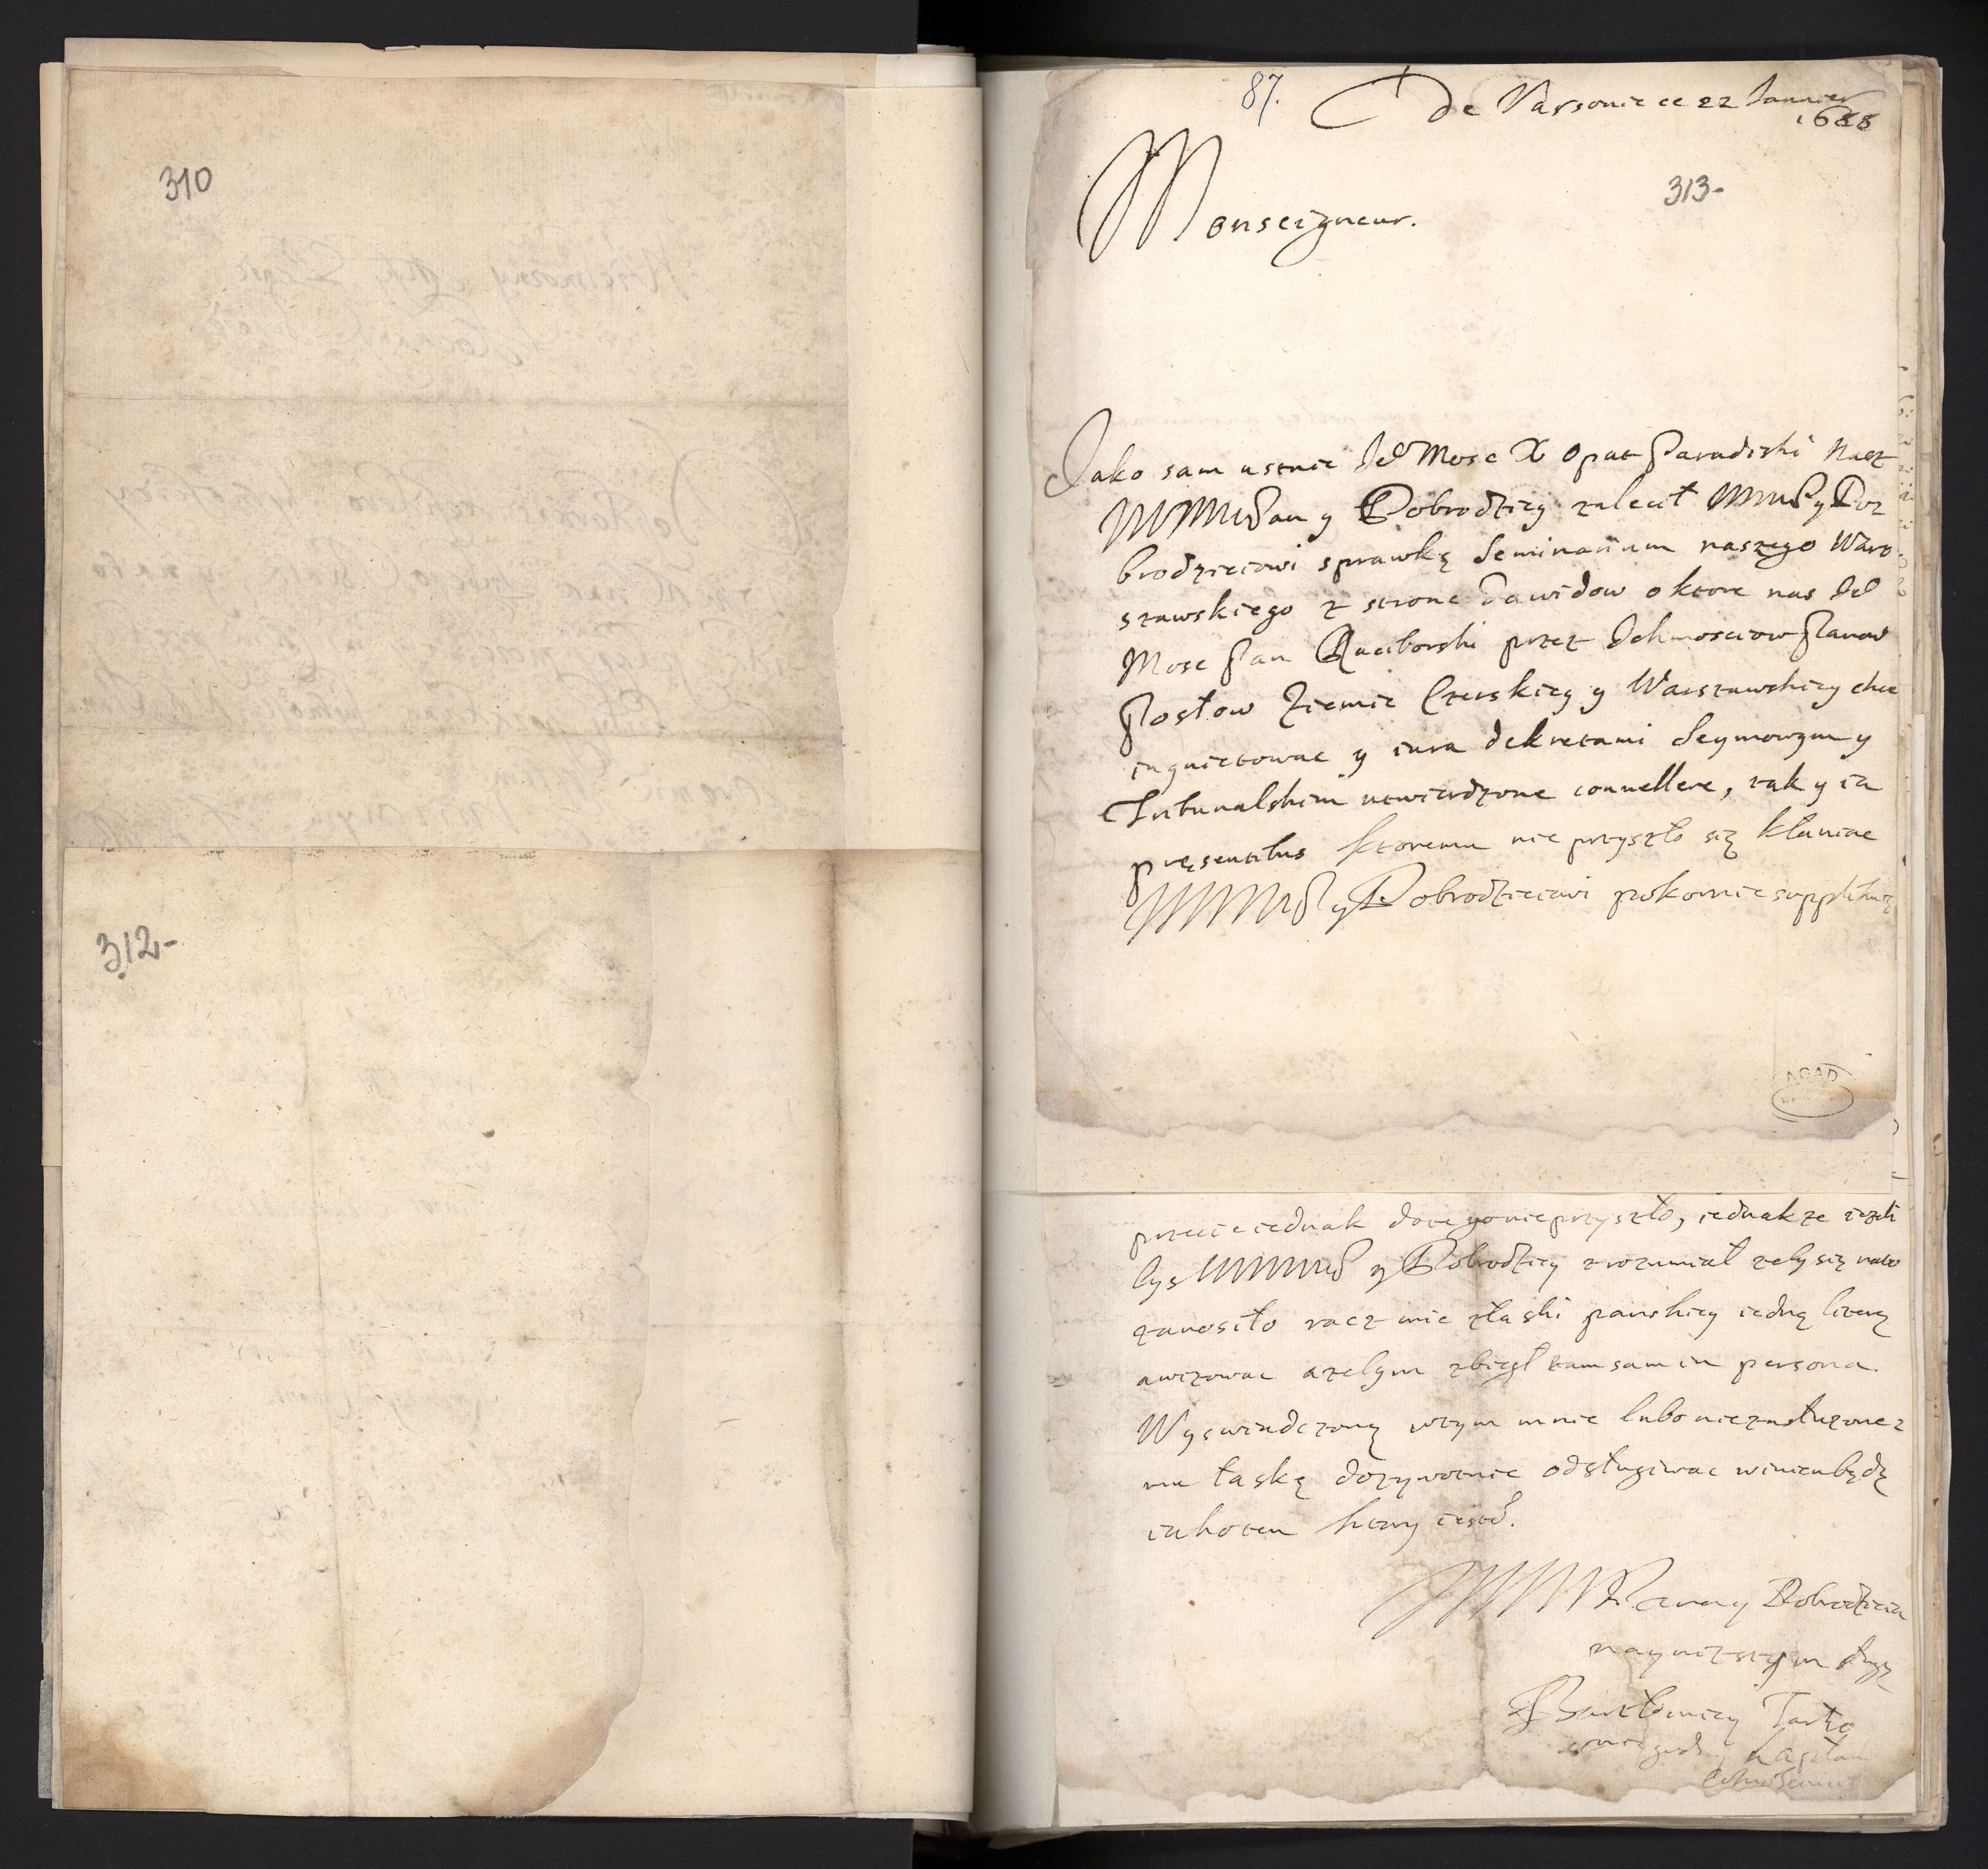 310
312-
87.
De Varsovie ce 22 Januier
1688
313-
Monseigneur.
Jako sam ustnie Je Mosc X Opat Paradiski nasz
WMM Pan y Dobrodziey zalecił WMM P y Do=
brodzieiowi sprawkę Seminarium naszego War=
szawskiego z strone Dawidow o ktore nas Je
Mosc Pan Raciborski przez Ichmosciow Panow
Posłow Ziemie Czerskiey y Warszawskiey chce
inquietowac y iura dekretami Seymowym y
Tribunalskim utwierdzone conuellere, tak y ia
pręsentibus ktoremu nie przyszło się kłaniac
WMM P y Dobrodzieiowi pokornie supplikuię
przecie iednak do tego nie przyszło, iednakze iezeli
bys WMM y Dobrodziey zrozumiał zeby się na to
zanosiło racz mie z łaski panskiey iedną literą
awizowac a zebym zbiegł tam sam in persona.
Wyswiadczoną w tym mnie lubo niezasłuzone=
mu łaskę dozywotnie odsługiwac winien będę
iakoten ktory iest.
WMM Pana y Dobrodzieia
nayniszszym sługą
Bartłomiey Tarło
niegodny Kapłan
AGAD